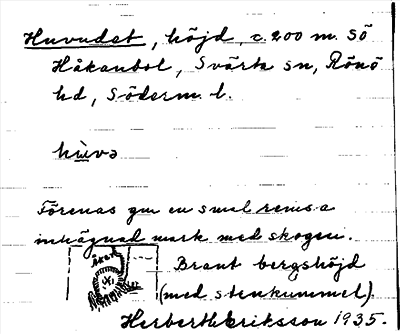 Huvudet, höjd, c. 200 m. sö
Håkanbol, Svärta sn, Rönö
hd, Söderm. l.
hùvə
Förenas gm en smal remsa
inhägnad mark med skogen.
Åker
Brant bergshöjd
(med stenkummel).
Herbert Eriksson 1935.